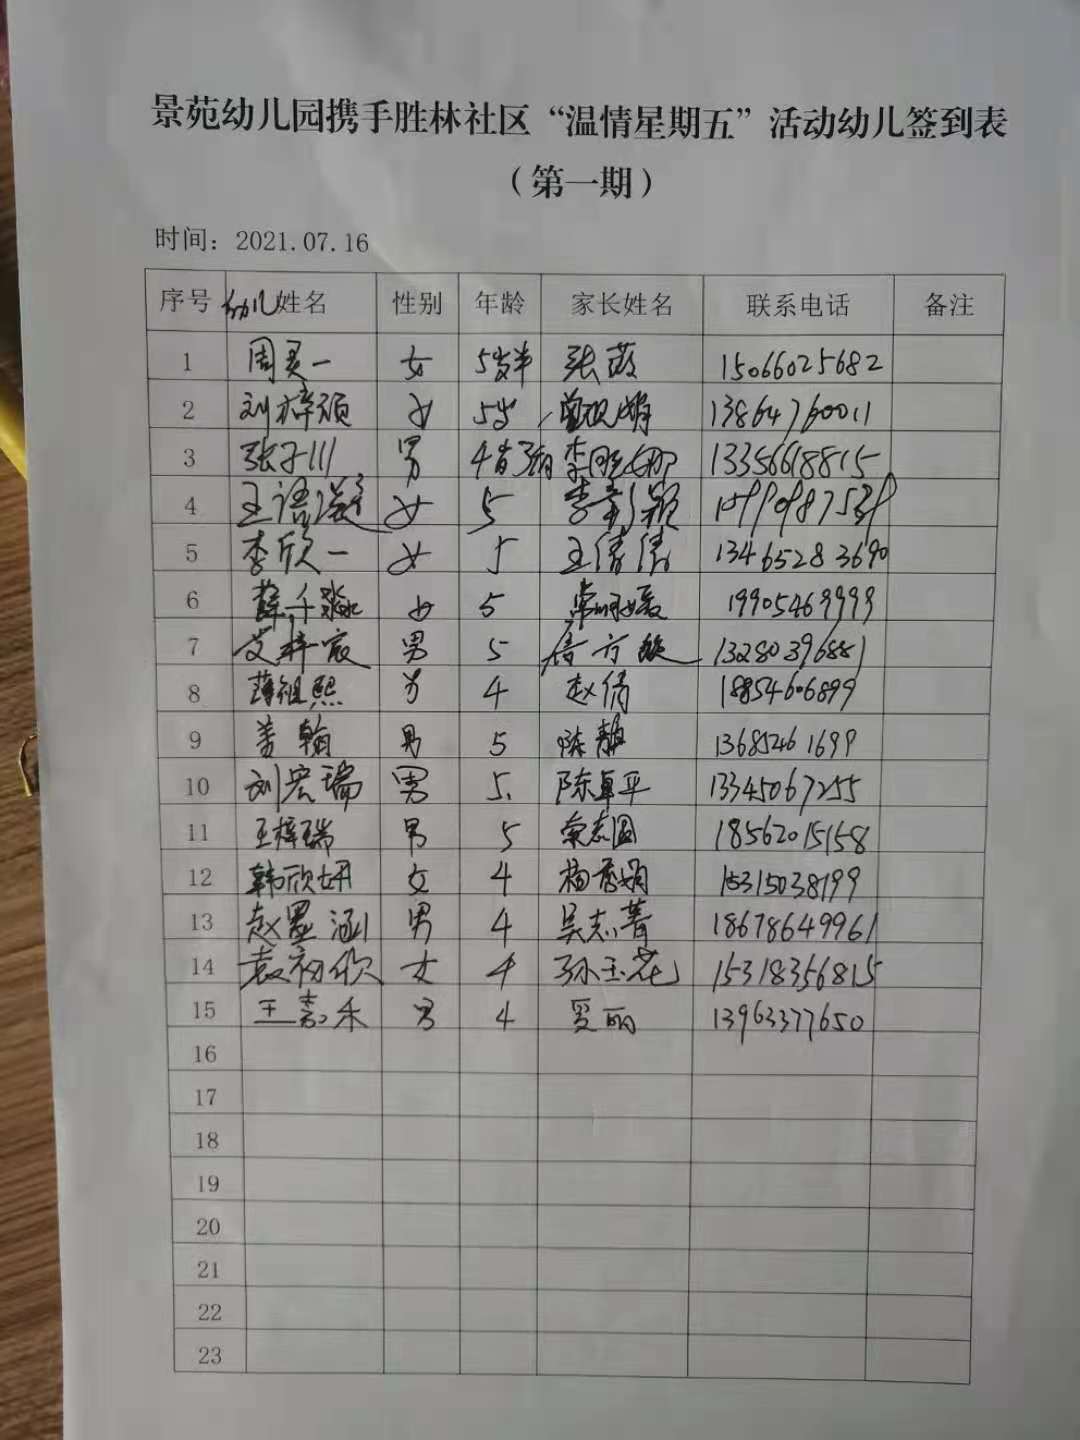 景苑幼儿园携手胜林社区“温情星期五”活动幼儿签到表
（第一期）
时间：2021.07.16
序号 幼儿姓名 性别 年龄 家长姓名 联系电话 备注
1 周灵一 女 5岁半 张 15066025682
2 刘梓颀 女 5岁 13864760011
3 张子川 男 13356618815
4 王语 女 5 李彰颖
5 李欣一 女 5 王倩倩 13465283690
6 薛千淼 女 5 常明媛 19905469999
7 艾梓宸 男 5 13280396881
8 薄祖熙 男 4 赵倩 18854606899
9 姜翰 男 5 陈静 13685461699
10 刘宏瑞 男 5. 陈卓平 13345067255
11 王梓瑞 男 5 18562015158
12 韩欣妍 女 4 杨秀娟 15315038199
13 赵墨涵 男 4 吴志菁 18678649961
14 袁初欣 女 4 孙玉花 15318356815
15 王嘉禾 男 4 贾丽 13963377650
16
17
18
19
20
21
22
23